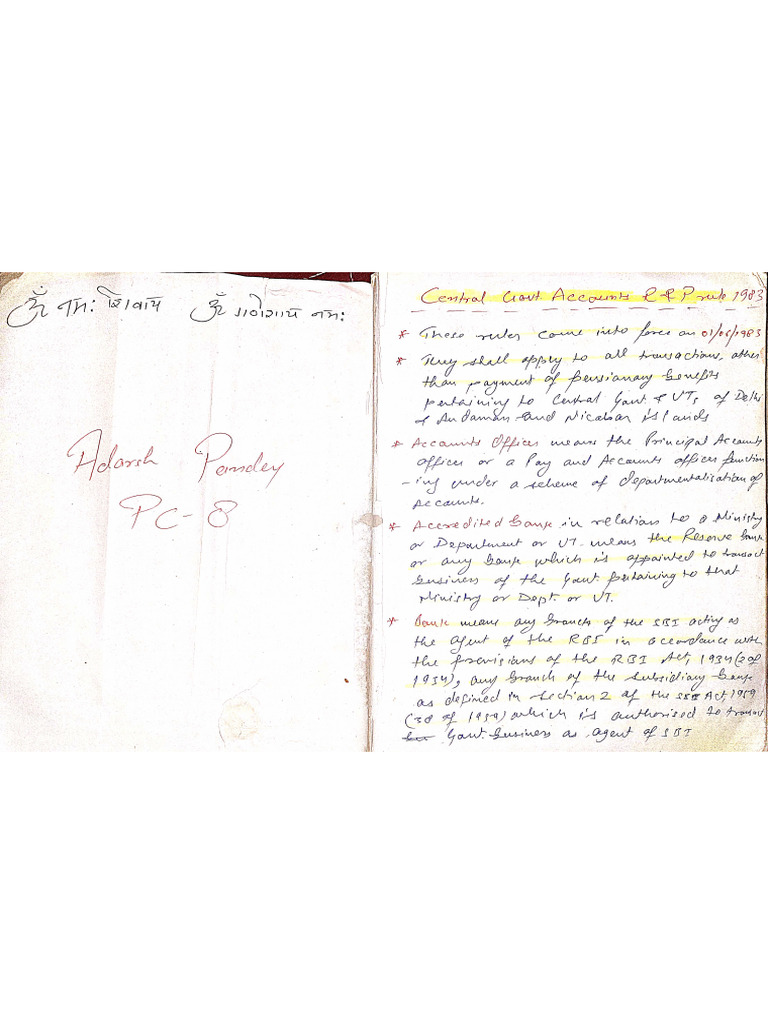 ॐ नमः शिवाय ॐ गणेशाय नमः
Adarsh Pandey
PC-8
Central Govt. Accounts R & P rule 1983
* These rules come into force on 01/05/1983
* They shall apply to all transactions, other
than payment of pensionary benefits
pertaining to Central Govt & UTs of Delhi
& Andaman and Nicobar islands
* Accounts Officer means the Principal Accounts
officer or a Pay and Accounts officer function
-ing under a scheme of departmentalisation of
Accounts.
* Accredited Bank in relation to a Ministry
or Department or UT. means the Reserve Bank
or any bank which is appointed to transact
business of the Govt. pertaining to that
Ministry or Dept. or UT.
* Bank means any branch of the SBI acting as
the agent of the RBI in accordance with
the provisions of the RBI Act, 1934 (2 of
1934), any branch of the subsidiary bank
as defined in section 2 of the Act, 1959
(38 of 1959) which is authorised to transact
Govt. business as agent of SBI